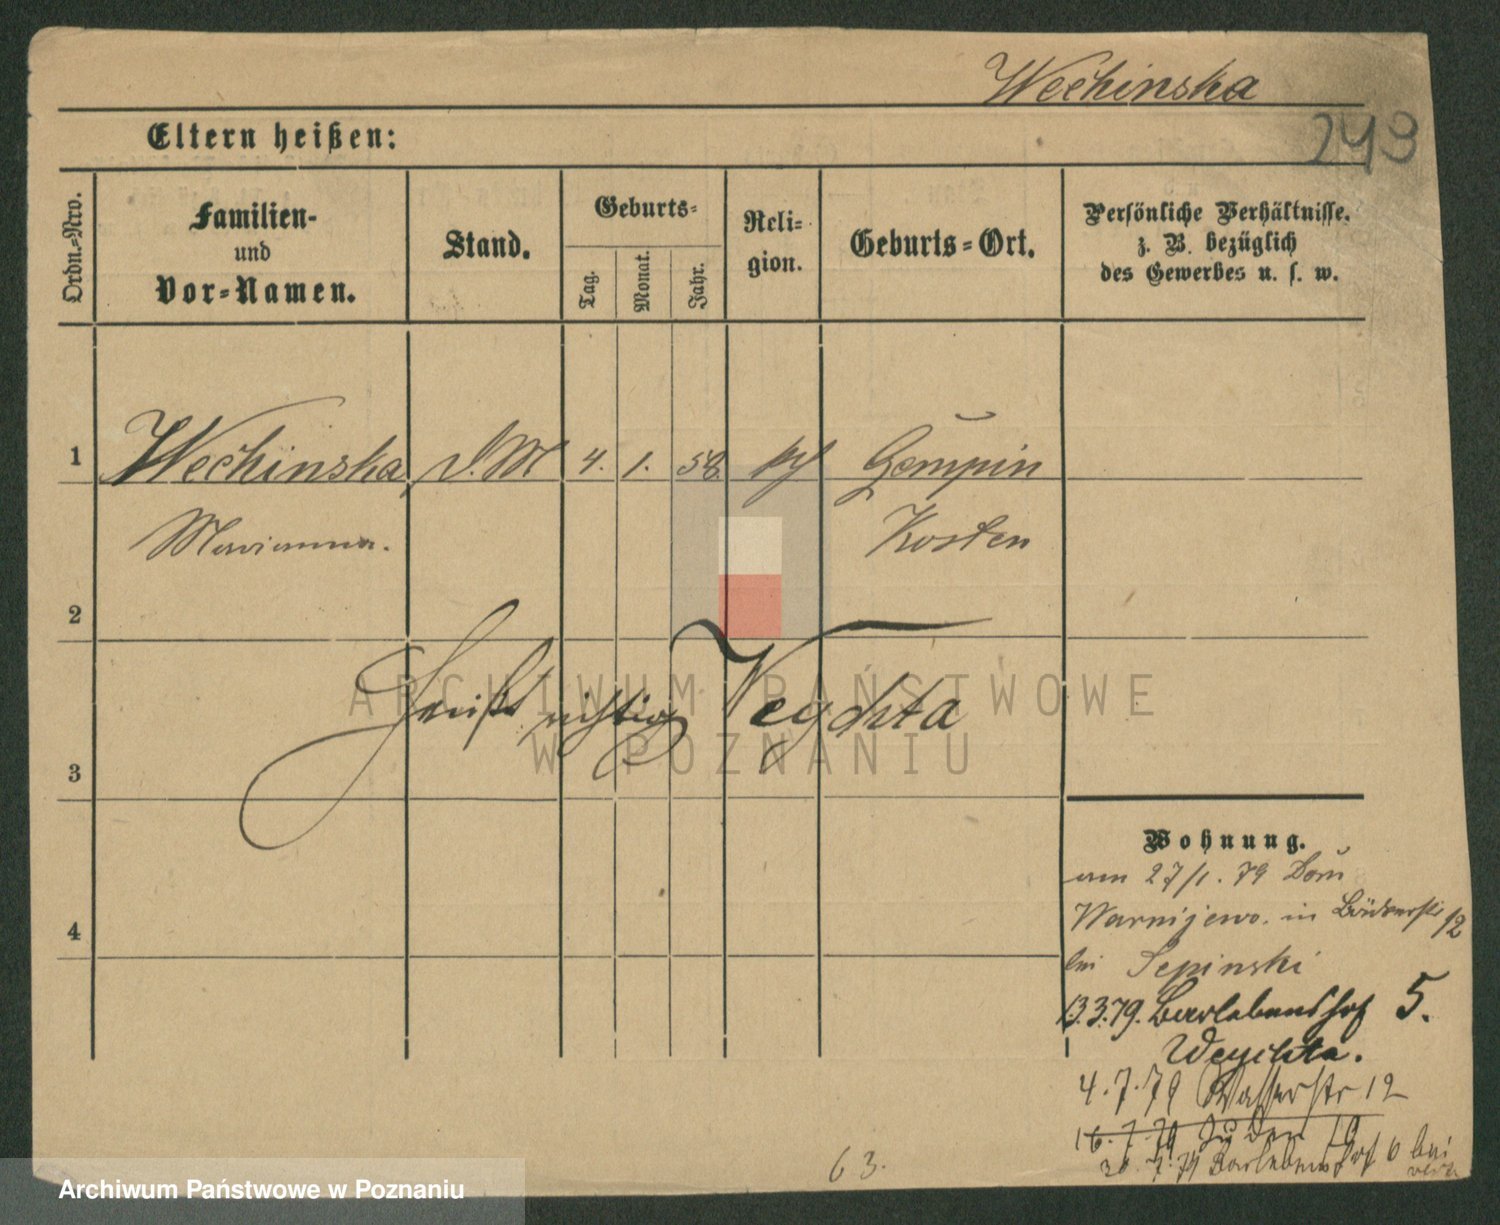 Wechinska
243
Eltern heißen:
Ordn.-Nro.
Familien-
und
Vor-Namen.
Stand.
Geburts-
Tag.
Monat.
Jahr.
Reli-
gion.
Geburts-Ort.
Persönliche Verhältnisse.
z. B. bezüglich
des Gewerbes u. s. w.
1
Wechinska D.M 4. 1. 58 Gempin
Marianna. Kosten
2
heißt richtig Weychta
ARCHIWUM PAŃSTWOWE
W POZNANIU
3
Wohnung.
am 27/1. 79
in 12
4
bei Sepinski
13.3.79. Barlebenshof 5.
Weychta.
4.7.79 Wasserstr 12
16.7.79 Juden
7. 79 Barlebenshof 6 bei
63.
Archiwum Państwowe w Poznaniu